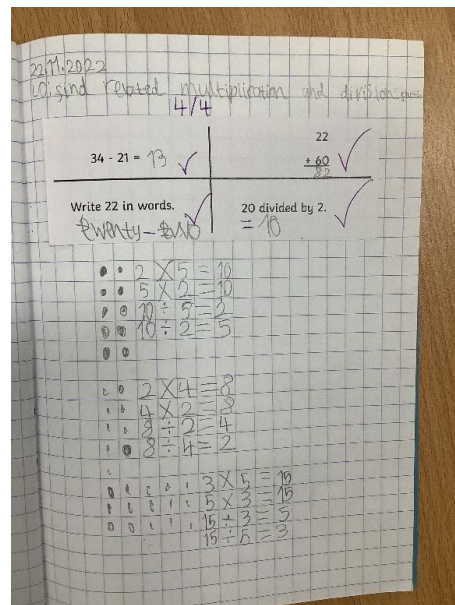 22.11.2022
LO: find related multiplication and division facts
4/4
34 - 21 = 13
22
+ 60
82
Write 22 in words.
twenty-two
20 divided by 2.
= 10
2 X 5 = 10
5 X 2 = 10
10 ÷ 5 = 2
10 ÷ 2 = 5
2 X 4 = 8
4 X 2 = 8
8 ÷ 2 = 4
8 ÷ 4 = 2
3 X 5 = 15
5 X 3 = 15
15 ÷ 3 = 5
15 ÷ 5 = 3